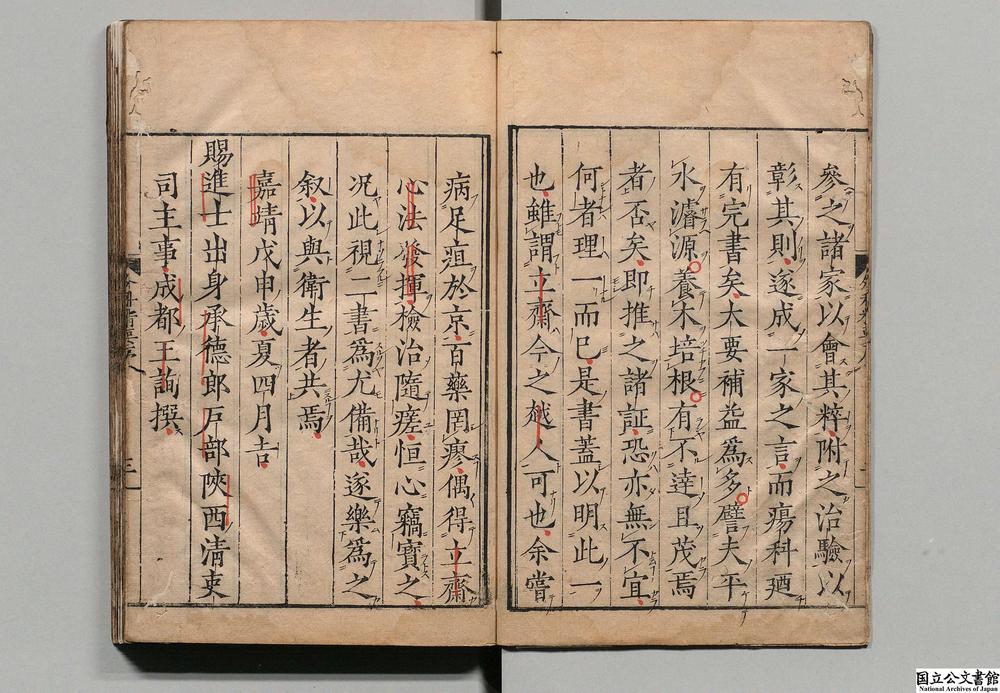 參之諸家以會其粹附之治驗以
彰其則遂成一家之言而瘍科廼
有完書矣大要補益爲多譬夫平
水濬源養木培根有不達且茂焉
者否矣即推之諸証恐亦無不宜
何者理一而已是書蓋以明此一
也雖謂立齋今之越人可也余嘗
病足疽於京百藥罔瘳偶得立齋
心法發揮檢治隨瘥恒心竊寶之
况此視二書爲尤備哉遂樂爲之
叙以與衛生者共焉
嘉靖戊申歲夏四月吉
賜進士出身承德郎戸部陝西清吏
司主事成都王詢撰
三
国立公文書館
National Archives of Japan